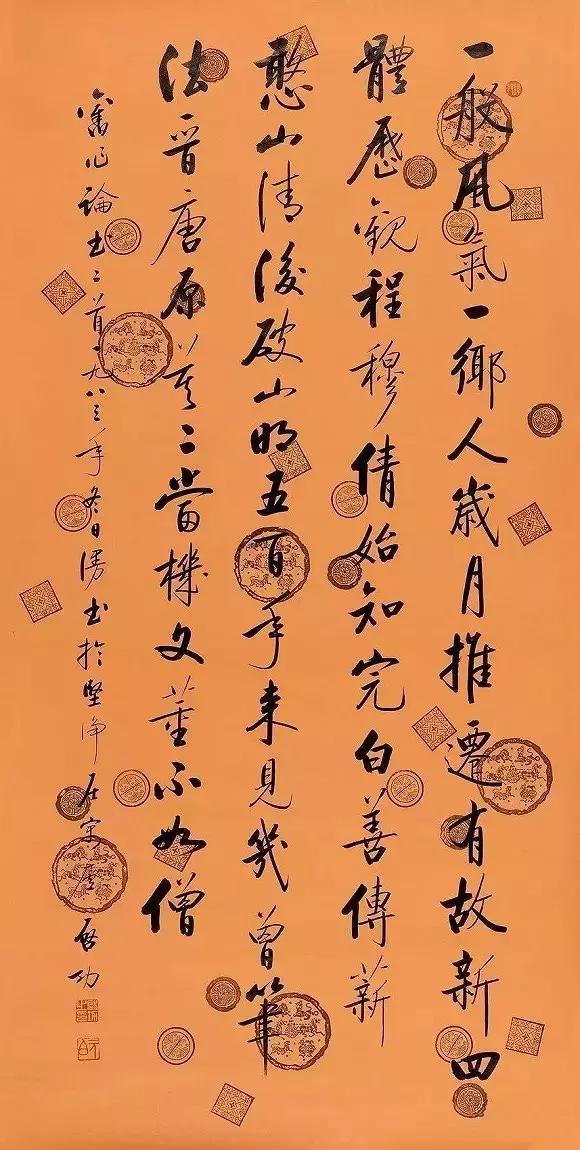 一般風氣一鄉人歲月推遷有故新四
體歷觀程穆倩始知完白善傳薪
憨山清後破山明五百年來見幾曾筆
法晉唐原莫二當機文董不如僧
舊作論书二首一九八三年冬日漫书於堅淨居 啟功